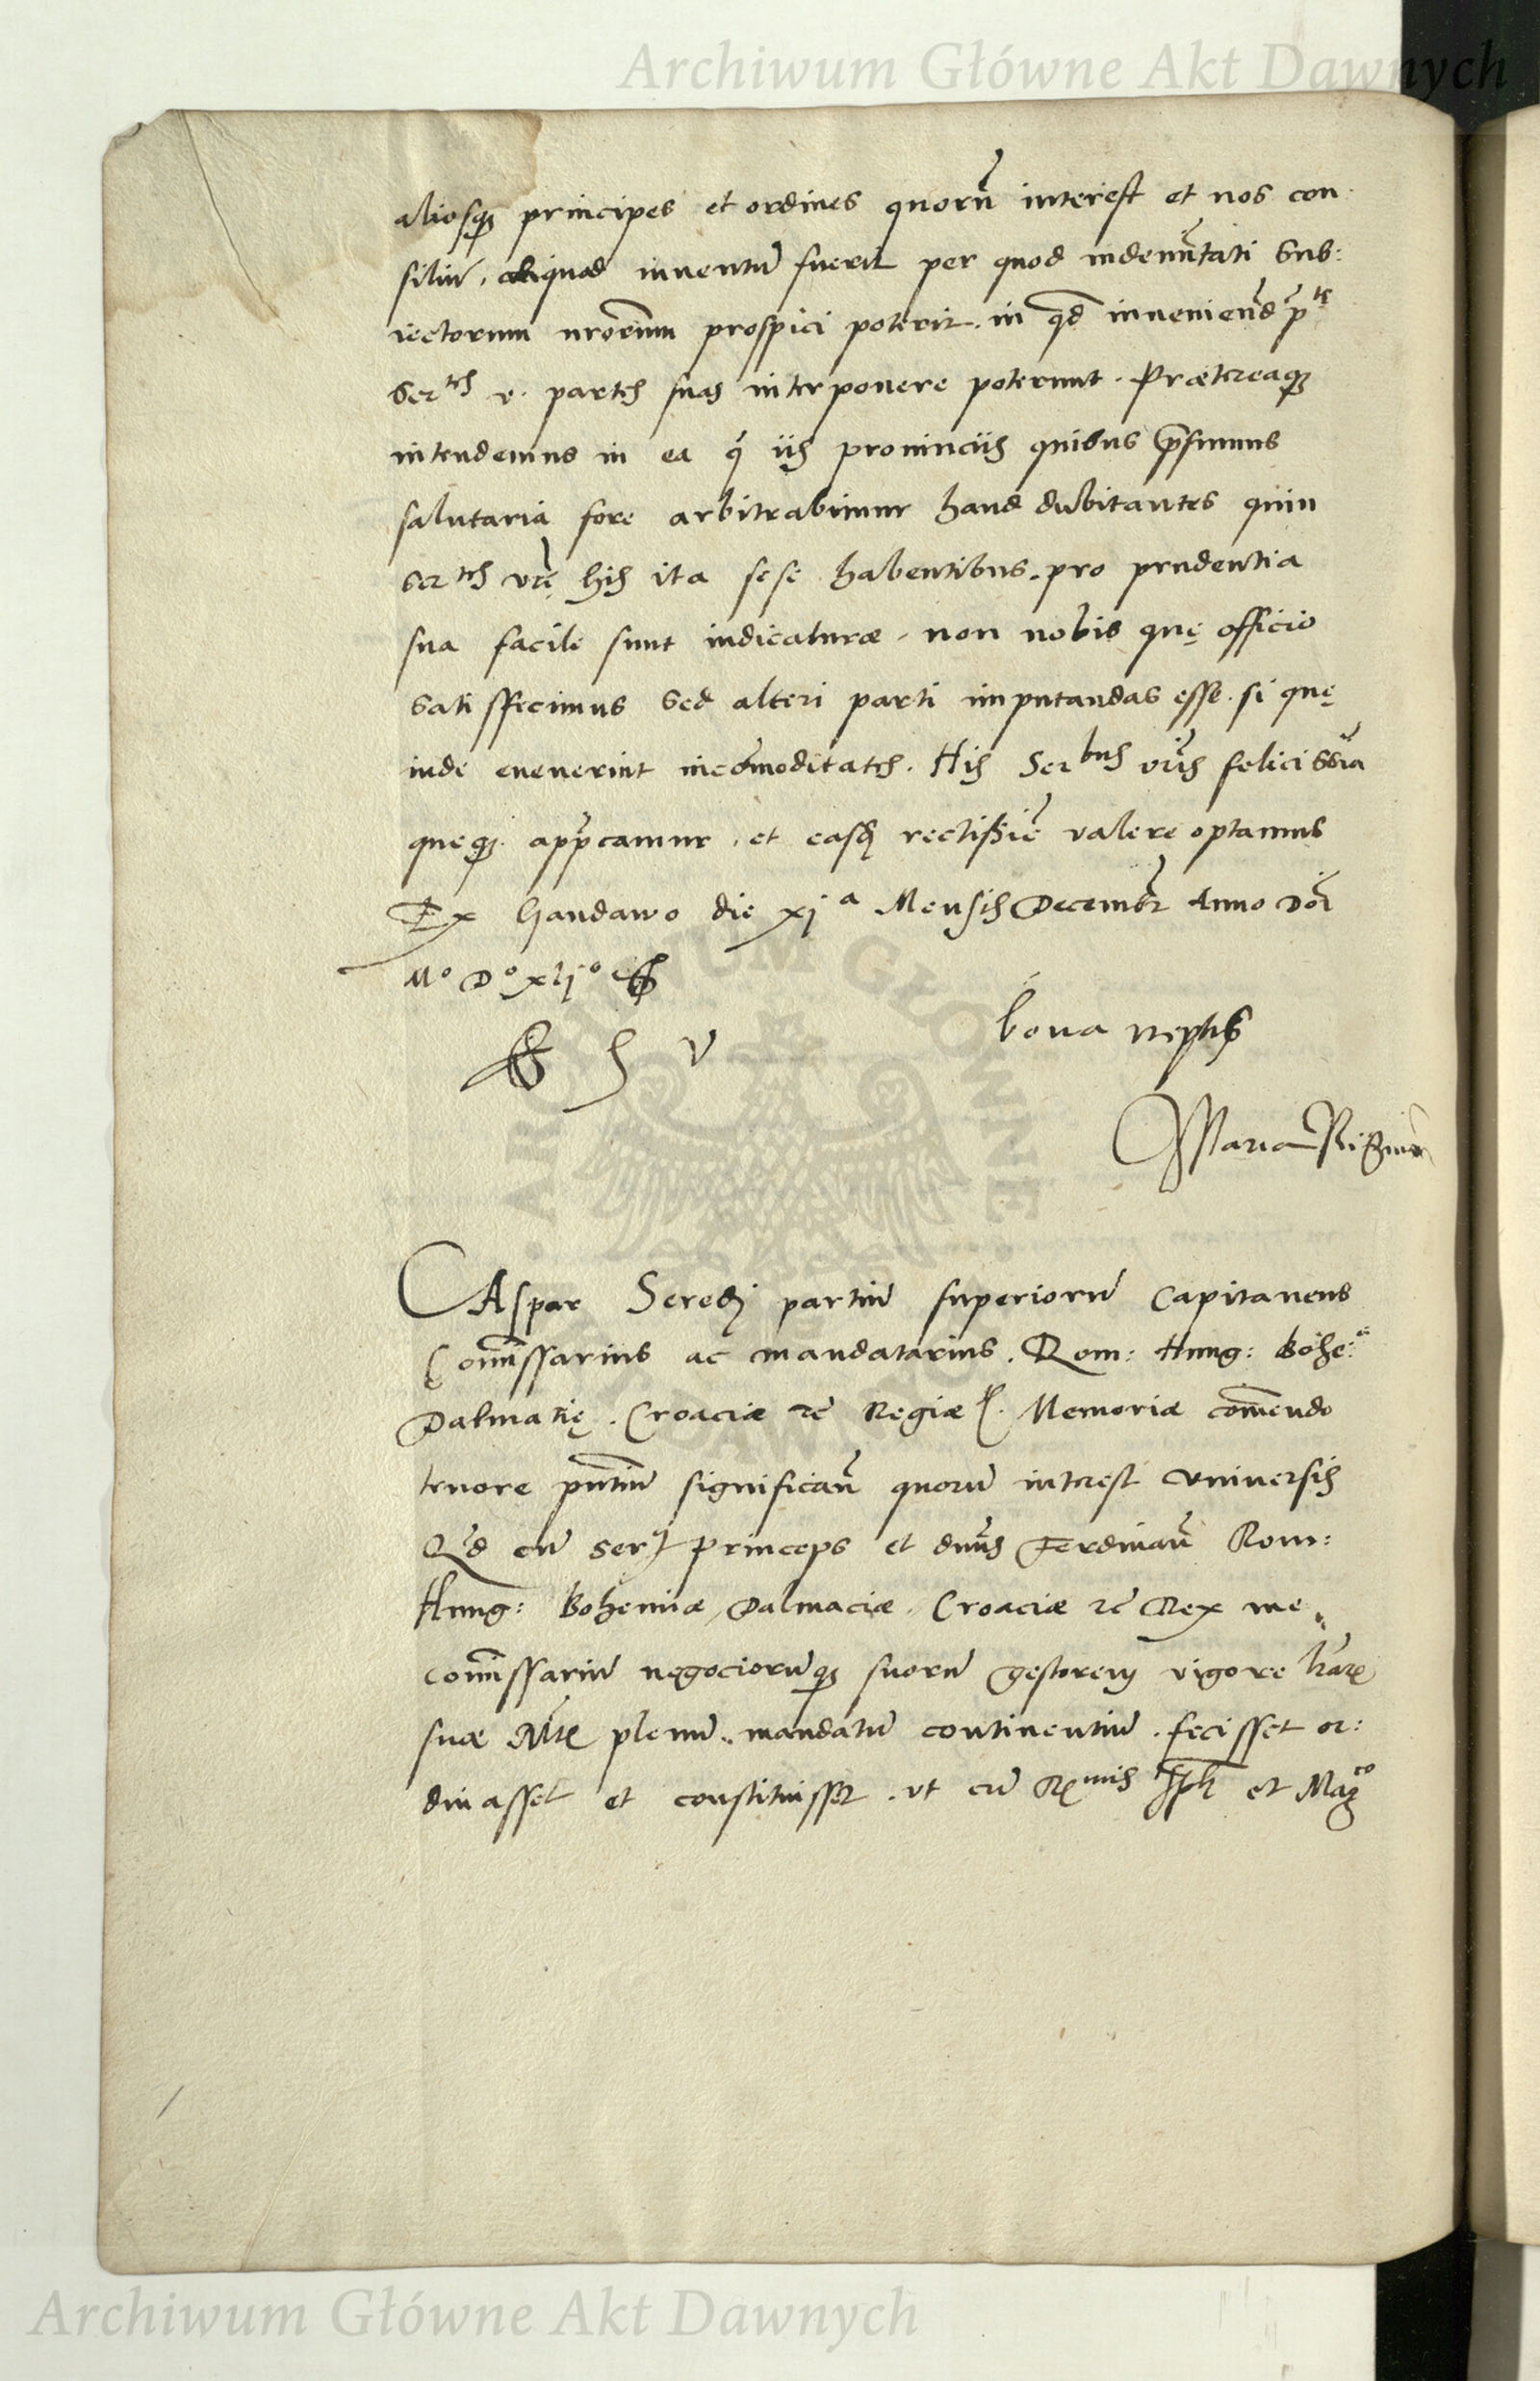 Archiwum Główne Akt Dawnych
aliosq₃ principes et ordines quorū interest et nos con
siliū, aliquod inventū fuerit per quod indem̄tati Sub:
iectorum nrorum prospici poterit. in qd inveniend p̄tę
Sertes v. partes suas interponere poterunt. Prætereaq₃
intendemus in ea q̄ iis provinciis quibus p̄sumus
salutaria fore arbitrabimur haud dubitantes quin
Sertes vrę his ita sese habentibus. pro prudentia
sua facile sunt iudicaturæ, non nobis quę officio
satisffecimus sed alteri parti imputandas esse. si quę
inde evenerint incōmoditates. His Serbus vris felicissīa
queq₃ appcamur, et easd rectissīe valere optamus
Ex Gandawo die xja Mensis Decembr Anno Dōi
Mo Do xljo
E S V
bona neptis
Maria Regina
CAspar Seredj partiū superiorū Capitaneus
Com̄issarius ac mandatarius. Rom: Hung: Bohe:
Dalmatię. Croaciæ zc Regiæ. Memoriæ com̄endo
tenore pn̄tiū significan̄ quorū interest Universis
Qd cū Ser Princeps et dn̄us Ferdinan̄ Rom:
Hung: Bohemiæ, Dalmaciæ, Croaciæ zc Rex me
com̄issariū negociorūq₃ suorū gestorem vigore lr̄arū
suæ Mtis plenū mandatū continentiū. fecisset or:
dinasset et constituisset. ut cū Rmis et Magco
ARCHIWUM GŁÓWNE AKT DAWNYCH
Archiwum Główne Akt Dawnych